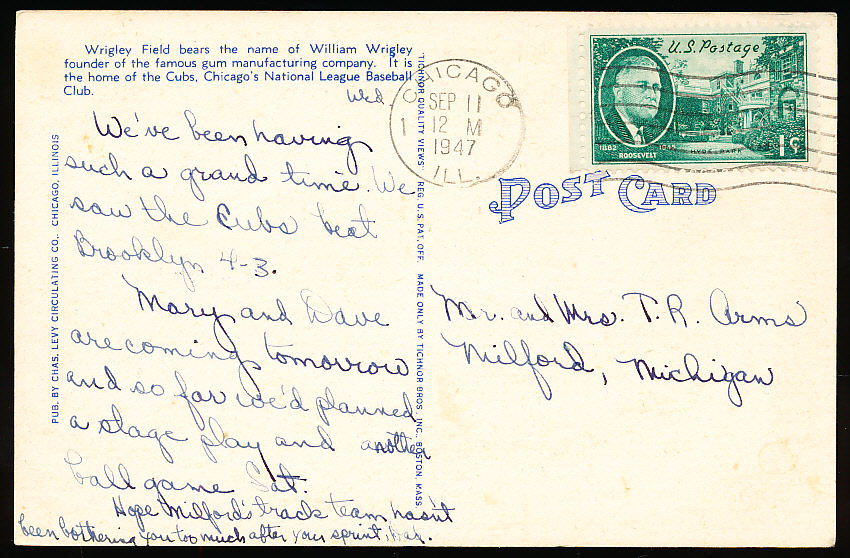 Wrigley Field bears the name of William Wrigley
founder of the famous gum manufacturing company. It is
the home of the Cubs, Chicago's National League Baseball
Club.
Wed.
We've been having
such a grand time. We
saw the Cubs beat
Brooklyn 4-3.
Mary and Dave
are coming tomorrow
and so far we'd planned
a stage play and another
ball game Sat.
Hope Milford's track team hasn't
been bothering you too much after your sprint,
PUB. BY CHAS. LEVY CIRCULATING CO., CHICAGO, ILLINOIS
TICHNOR QUALITY VIEWS REG. U. S. PAT. OFF. MADE ONLY BY TICHNOR BROS., INC., BOSTON, MASS.
CHICAGO
SEP 11
12 M
1947
ILL.
1
U.S. Postage
1882 1945 HYDE PARK
ROOSEVELT
1¢
POST CARD
Mr. and Mrs. T. R. Arms
Milford, Michigan